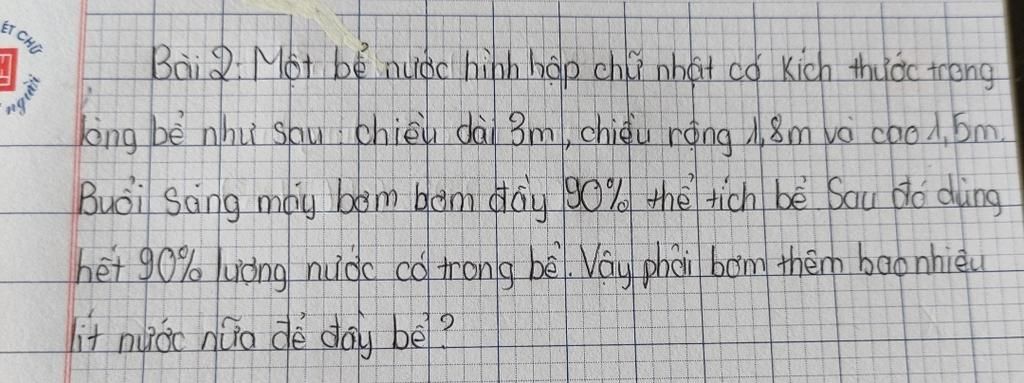 ÉT CHỮ
H
người
Bài 2: Một bể nước hình hộp chữ nhật có kích thước trong
lòng bể như sau: chiều dài 3m, chiều rộng 1,8m và cao 1,5m.
Buổi sáng máy bơm bơm đầy 90% thể tích bể Sau đó dùng
hết 90% lượng nước có trong bể. Vậy phải bơm thêm bao nhiêu
lít nước nữa để đầy bể?